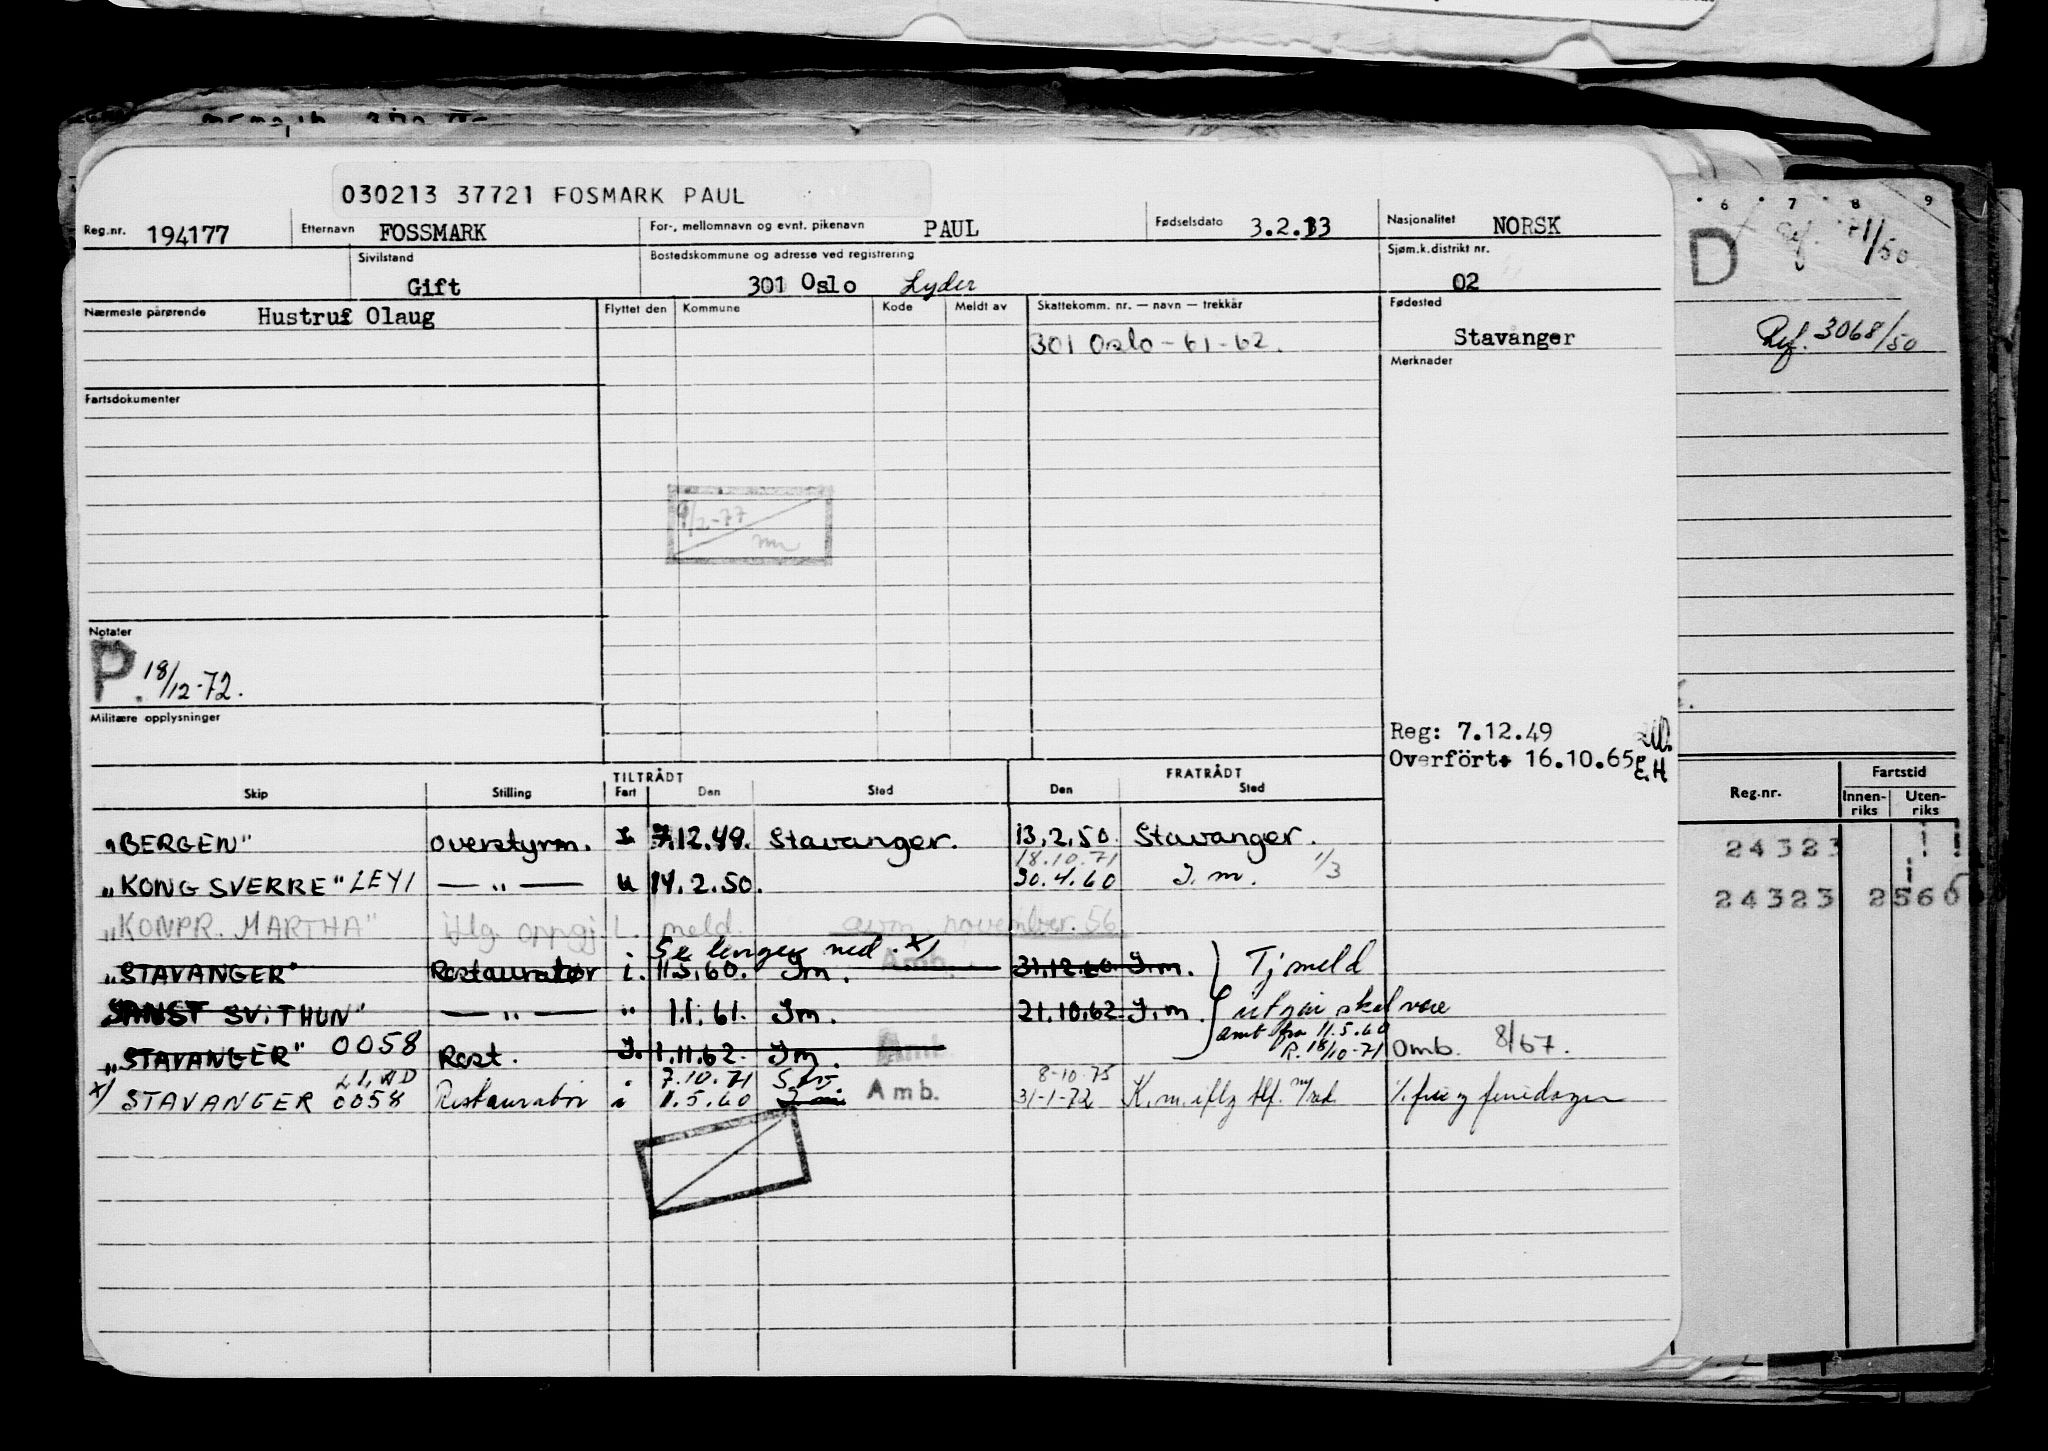 030213 37721 FOSMARK PAUL
Reg.nr. 194177 Etternavn FOSSMARK For-, mellomnavn og evnt. pikenavn PAUL Fødselsdato 3.2.13 Nasjonalitet NORSK
Sivilstand Gift Bostedskommune og adresse ved registrering 301 Oslo Lyder Sjøm.k.distrikt nr. 02
Nærmeste pårørende Hustru: Olaug Flyttet den Kommune Kode Meldt av Skattekomm. nr. — navn — trekkår Fødested
301 Oslo - 61-62. Stavanger
Merknader
Fartsdokumenter
9/2-77
Notater
P. 18/12-72.
Militære opplysninger
Reg: 7.12.49
Overført 16.10.65 E.H
TILTRÅDT FRATRÅDT
Skip Stilling Fart Den Sted Den Sted
"BERGEN" overstyrm. I 7.12.49. Stavanger. 13.2.50. Stavanger.
18.10.71
"KONG SVERRE" LEYI — " — u 14.2.50. 30.4.60 J.m. 1/3
"KONPR. MARTHA" iflg. oppgj. meld. november. 56.
Se lenger ned x/
"STAVANGER" Restauratør i. 11.5.60. Jm. Amb. 31.12.60. J.m. Tj meld
SVITHUN" — " — " 1.1.61. Jm. 21.10.62 J.m. utgår skal være
Amb fra 11.5.60
"STAVANGER" 0058 Rest. I. 1.11.62. Jm. Amb. R. 18/10-71 Omb. 8/67.
7.10.71 8-10-75
x/ STAVANGER 0058 Restauratør i 11.5.60 Amb. 31-1-72 K.m. iflg tlf. m/red.
6 7 8 9
D
Ref. 3068/50
Reg.nr. Fartstid
Innen-riks Uten-riks
24323
24323 2560